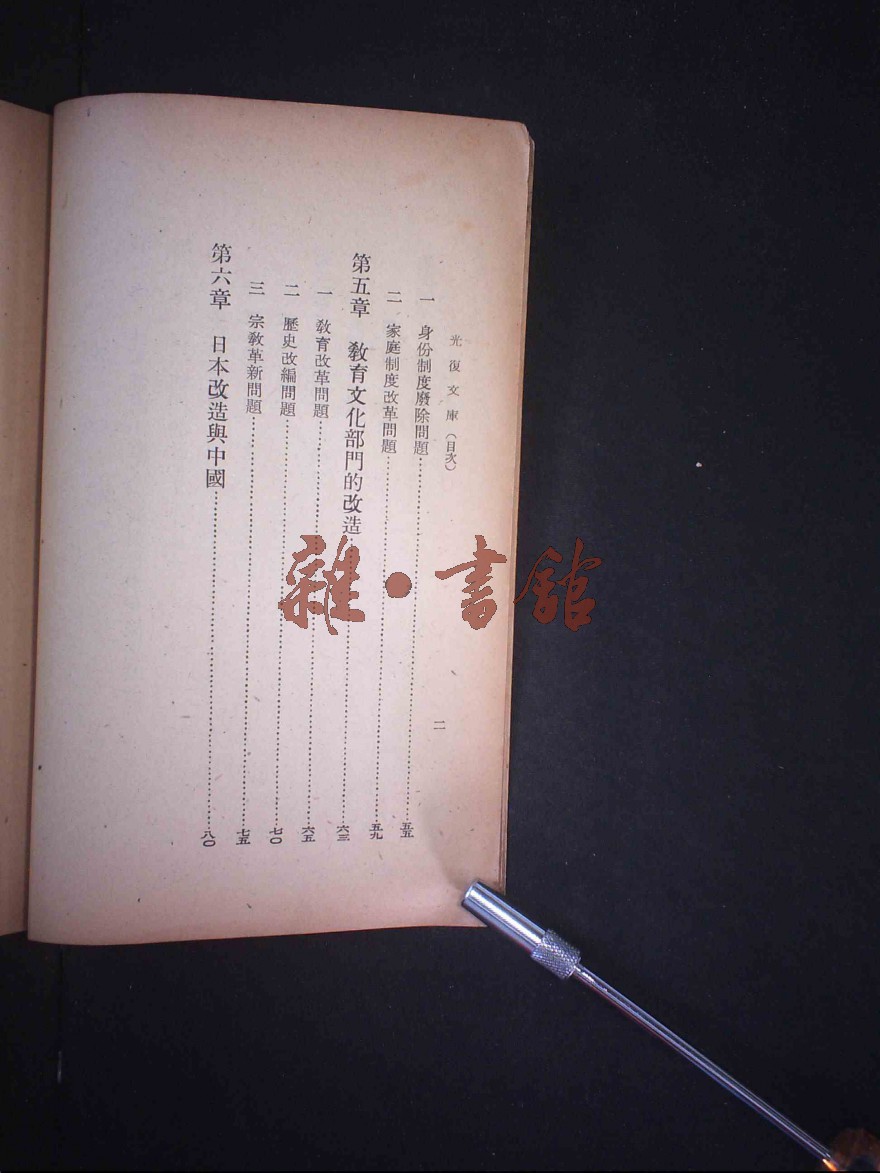 光復文庫（目次）
二
一　身份制度廢除問題……五五
二　家庭制度改革問題……五九
第五章　敎育文化部門的改造……六三
一　敎育改革問題……六五
二　歷史改編問題……七〇
三　宗敎革新問題……七五
第六章　日本改造與中國……八〇
雜·書館